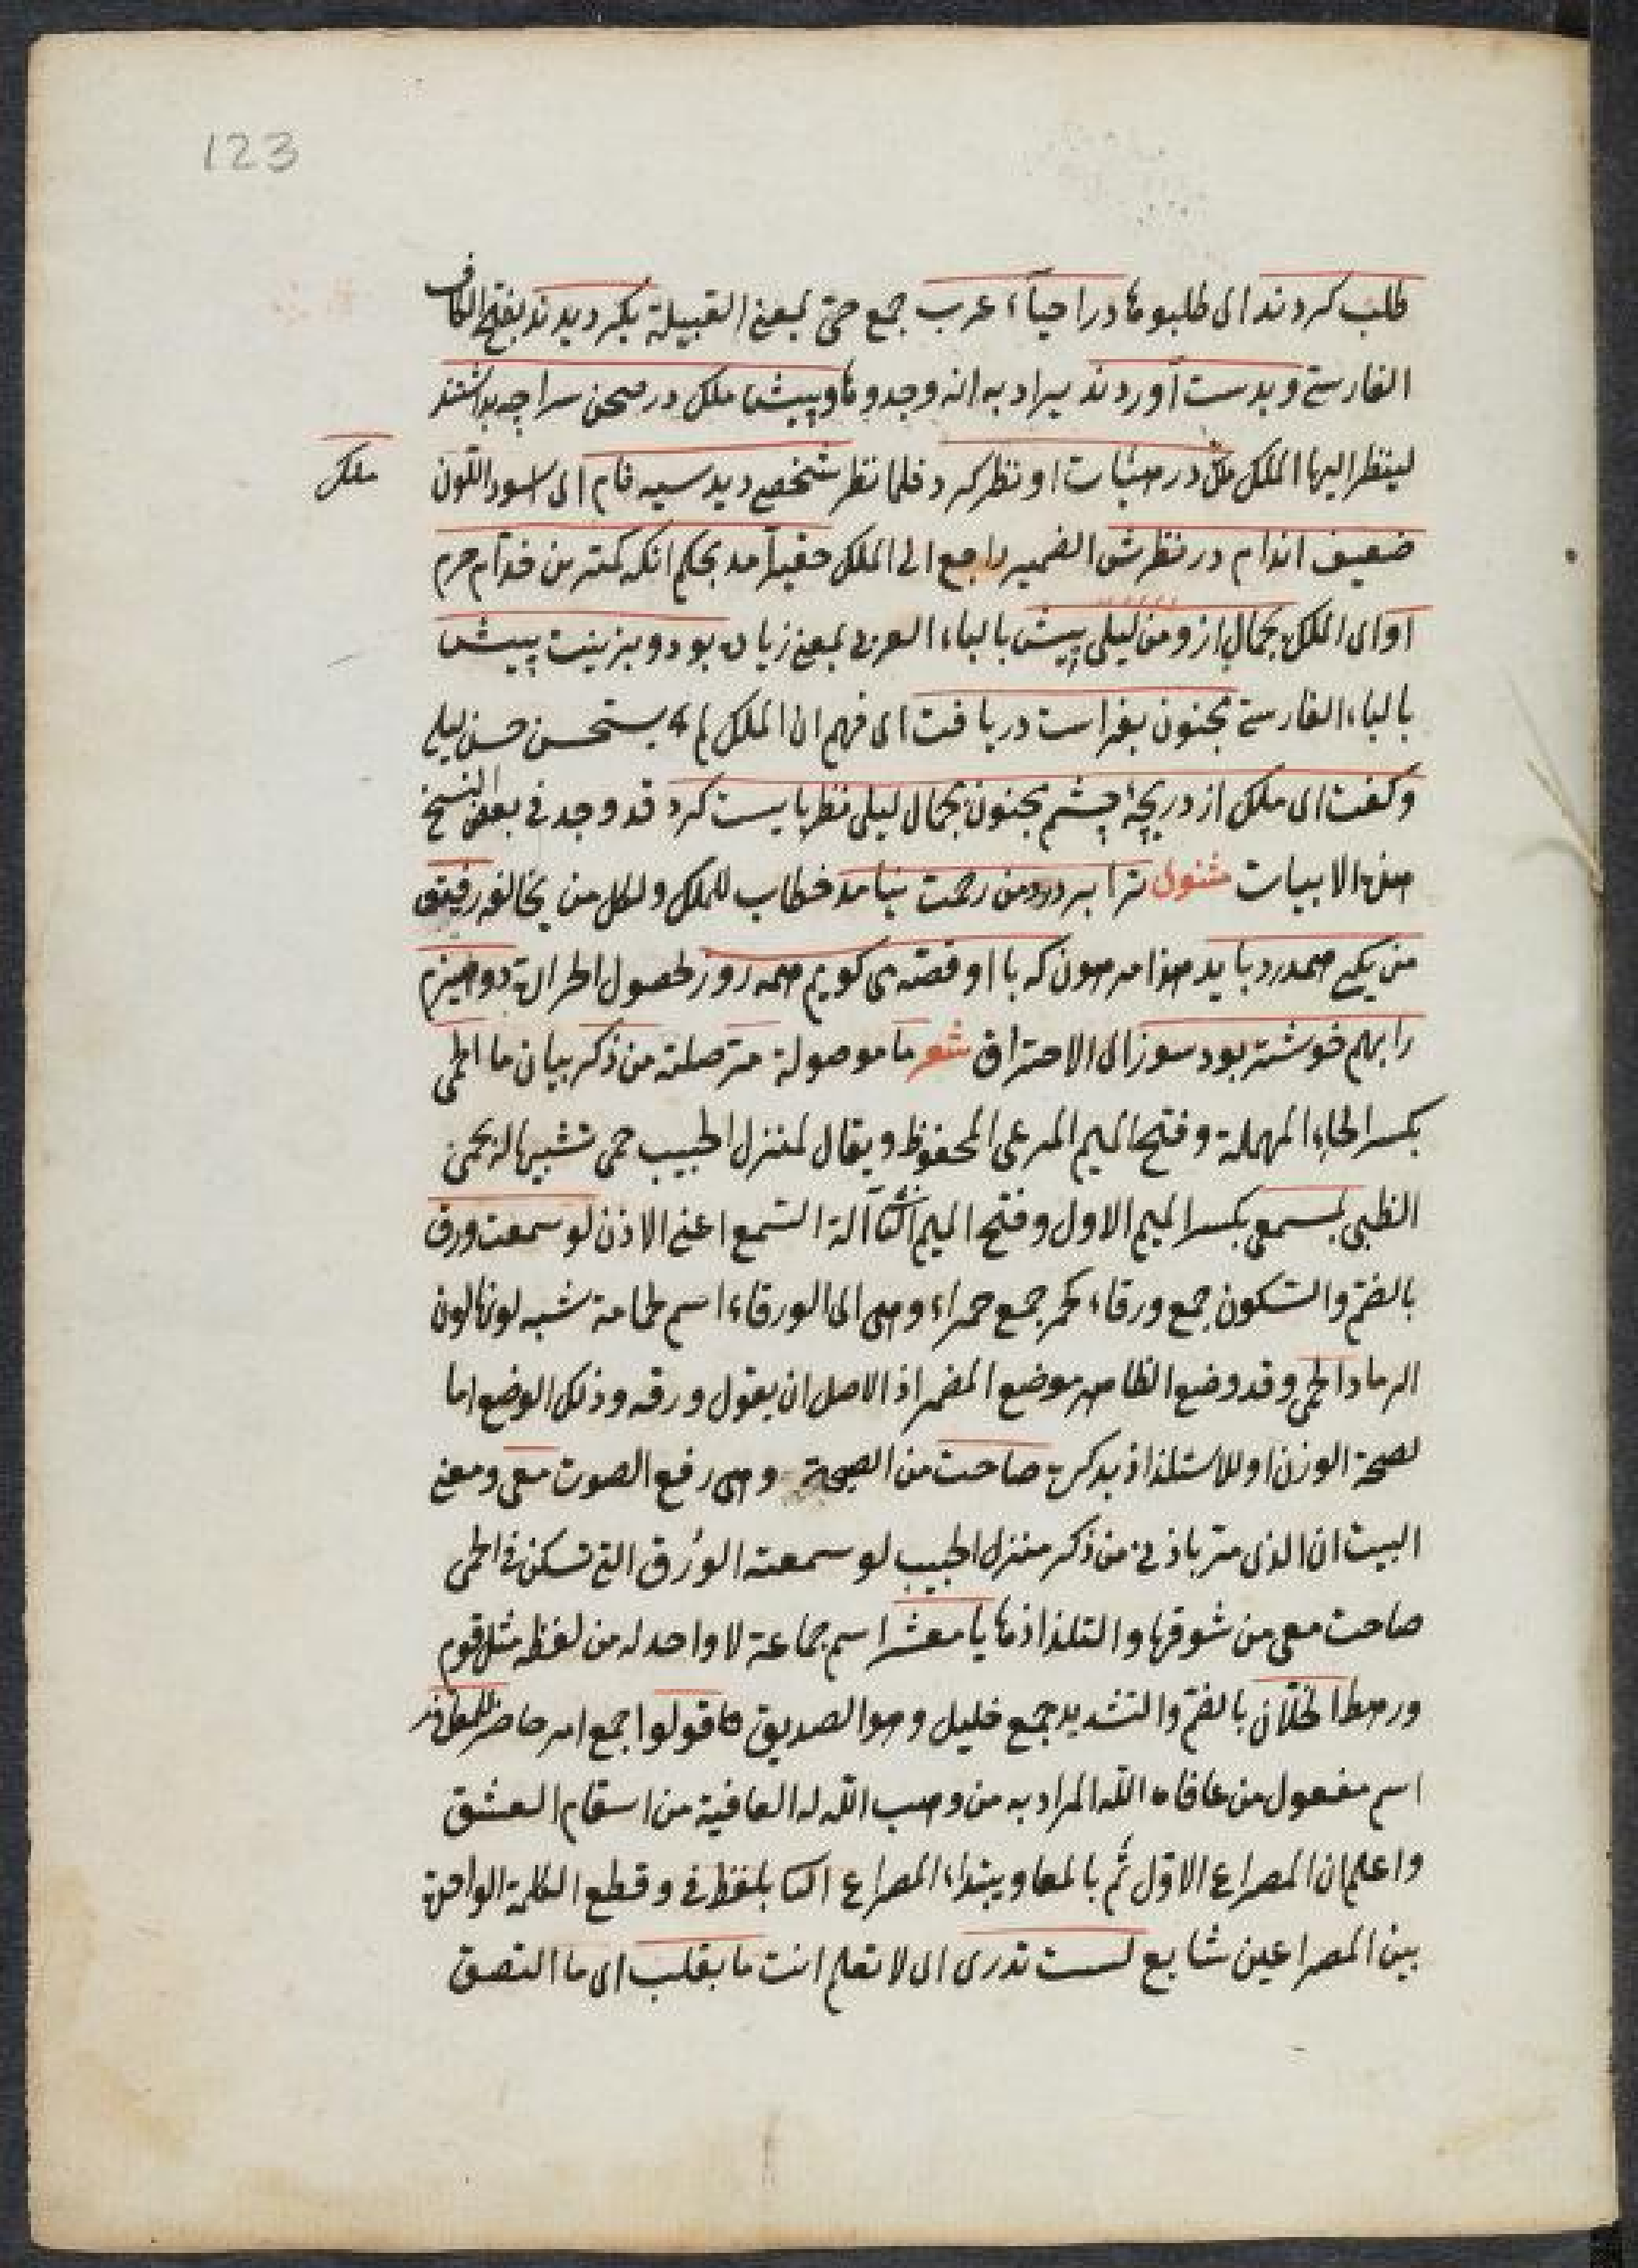 123
طلب كردند اى طلبوها در احياء عرب جمع حىّ بمعنى القبيلة بكرديدند بفتح الكاف
الفارسے وبدست آوردند يراد به انه وجدوها وپيش ملك در صحن سراچه بداشتند
لينظر اليها الملك ملك در هيئات او نظر كرد فلما نظر شخصے ديد سيه فام اى اسود اللون
ملك
ضعيف اندام در نظرش الضمير راجع الى الملك حقير آمد بحكم انكه كمترين خدّام حرم
او اى الملك بجمال از و من ليلى بيش بالباء العربى بمعنى زياده بود و بزينت پيش
بالباء الفارسے مجنون بفراست دريافت اى فهم ان الملك لم يستحسن حسن ليلى
وكفت اى ملك از دريچۀ چشم مجنون بجمال ليلى نظر بايست كرد قد وجد فى بعض النسخ
هذه الابيات مثنوى ترا بر درد من رحمت نيامد خطاب للملك ولكل من يخالفه رفيق
من يكے همدرد بايد هذا مرهون كه با او قصّه مى كويم همه روز لحصول الحرارة دو هيزم
را بهم خوشتر بود سوز اى الاحتراق شعر ما موصولة مرّ صلته من ذكر بيان ما الحمى
بكسر الحاء المهملة وفتح الميم المرعى المحفوظ ويقال لمنزل الحبيب حمى تشبيها له بحمى
الظبى بمسمعى بكسر الميم الاول وفتح الميم الثا آلة السّمع اعنى الاذن لو سمعت ورق
بالضمّ والسّكون جمع ورقاء كحمر جمع حمراء وهى اى الورقاء اسم حمامة شبه لونها لون
الرماد الحمى وقد وضع الظاهر موضع المضمر اذ الاصل ان يقول ورقه وذلك الوضع اما
لصحة الوزن او للاستلذاذ بذكره صاحت من الصيحة وهى رفع الصوت معى ومعنى
البيت ان الذى مرّ باذنى من ذكر منزل الحبيب لو سمعته الوُرق التى تسكن فى الحمى
صاحت معى من شوقها والتلذاذها يا معشر اسم جماعة لا واحد له من لفظه مثل قوم
ورهط الخلّان بالضمّ والتشديد جمع خليل وهو الصديق قولوا جمع امر حاضر للمعافى
اسم مفعول من عافاه اللّه المراد به من وهب اللّه له العافية من اسقام العشق
واعلم ان المصراع الاوّل تمّ بالمعا ويبتداء المصراع الثا بلفظ فى وقطع الكلمة الواحدة
بين المصراعين شايع لست تدرى اى لا تعلم انت ما بقلب اى ما التصق